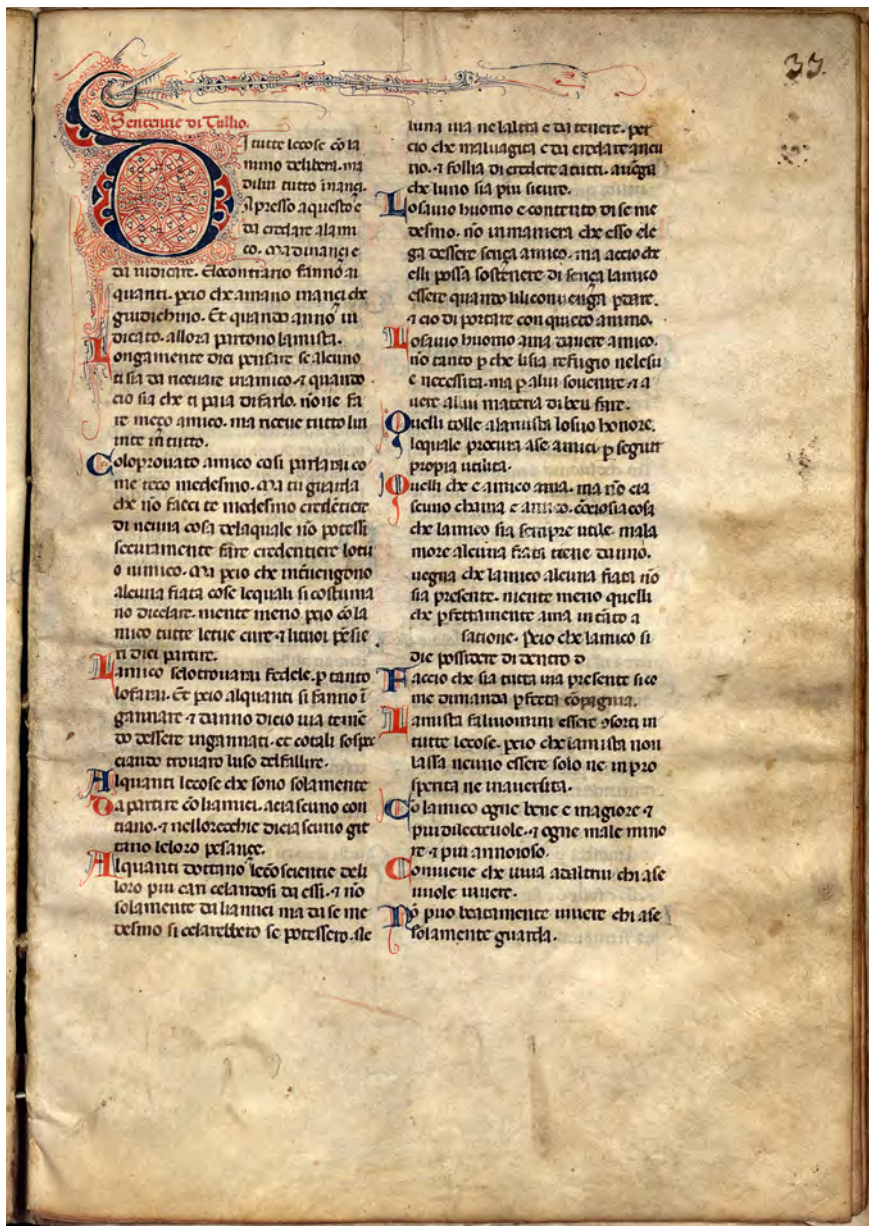 33.
Sententie di Tullio.
DI tutte lecose cō la
nimo delibera. ma
dilui tutto inanci.
Apresso aquesto e
da credare alami
co. Ma dinanci e
da iudicare. Elcontrario fanno ai
quanti. pcio che amano inanci che
giudichino. Et quando anno iu
dicato. allora partono lamista.
Longamente dici pensare se alcuno
ti sia da ricevare in amico. ⁊ quando
cio sia che ti paia di farlo. nōne fa
re meço amico. ma riceve tutto lui
inte in tutto.
Coloprovato amico cosi parlarai co
me teco medesimo. Ma tu guarda
che nō facci te medesmo credētiere
di neuna cosa delaquale nō potessi
securamente fare credentiere lotu
o inimico. Ma pcio che intuengono
alcuna fiata cose lequali si costuma
no dicelare. niente meno pcio cō la
mico tutte letue cure ⁊ lituoi pēsie
ri dici partire.
Lamico selotrovarai fedele. p tanto
lofarai. Et pcio alquanti si fanno ī
gannare ⁊ danno dicio via temē
do dessere ingannati. et cotali sospe
ciando trovaro luso delfallire.
Alquanti lecose che sono solamente
da partire cō liamici. aciascuno con
tiano. ⁊ nellorecchie diciascuno git
tano leloro pesançe.
Alquanti dottano lecōscientie deli
loro piu cari celandosi da essi. ⁊ nō
solamente da liamici ma da se me
desmo si celarebbero se potessero. Ne
luna via ne laltra e da tenere. per
cio che malvagita e da credare ancu
no. ⁊ follia di credere a tutti. avēga
che luno sia piu sicuro.
Losavio huomo e contento di se me
desmo. nō in maniera che esso ele
ga dessere sença amico. ma accio che
elli possa sostenere di sença lamico
essere quando lili convenga pdare.
⁊ cio di portare con quieto animo.
Losavio huomo ama davere amico.
nō tanto p che lisia refugio nelesu
e necessita. ma p alui sovenire ⁊ a
vere alui materia di ben fare.
Quelli tolle alamista losuo honore.
lequale procura ase amici. p seguir
propia utilita.
Quelli che e amico ama. ma nō cia
scuno chama e amico. cōciosiacosa
che lamico sia sempre utile. mala
more alcuna fiata tiene danno.
vegna che lamico alcuna fiata nō
sia presente. niente meno quelli
che pfettamente ama in cāto a
satione. Pcio che lamico si
die possidere di dentro
Faccio che sia tutta via presente sico
me dimanda pfetta cōpagnia.
Lamista faliuomini essere ꝯsorti in
tutte lecose. pcio che lamista non
lassa neuno essere solo ne in pro
sperita ne in aversita.
Co lamico ogne bene e magiore ⁊
piu dilectevole. ⁊ ogne male mino
re ⁊ piu annoioso.
Conviene che viva adaltrui chi ase
vuole vivere.
Nō puo beatamente vivere chi ase
solamente guarda.